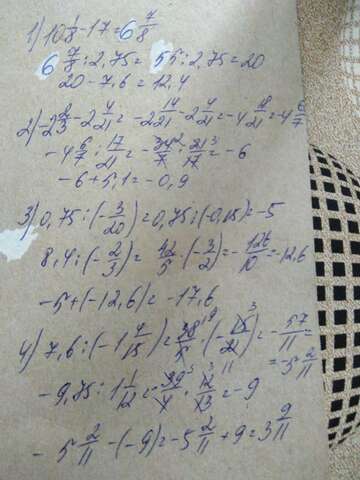 1) 10 1/8 - 17 = 6 7/8
6 7/8 : 2,75 = 55 : 2,75 = 20
20 - 7,6 = 12,4
2) -2 2/3 - 2 4/21 = -2 14/21 - 2 4/21 = -4 18/21 = -4 6/7
-4 6/7 : 17/21 = -34²/7 · 21³/17 = -6
-6 + 5,1 = -0,9
3) 0,75 : (-3/20) = 0,75 : (-0,15) = -5
8,4 : (-2/3) = 42/5 · (-3/2) = -126/10 = -12,6
-5 + (-12,6) = -17,6
4) 7,6 : (-1 7/15) = 38/5 · (-15³/21) = -57/11 =
= -5 2/11
-9,75 : 1 1/12 = -39³/4 · 12³/13 = -9
-5 2/11 - (-9) = -5 2/11 + 9 = 3 9/11